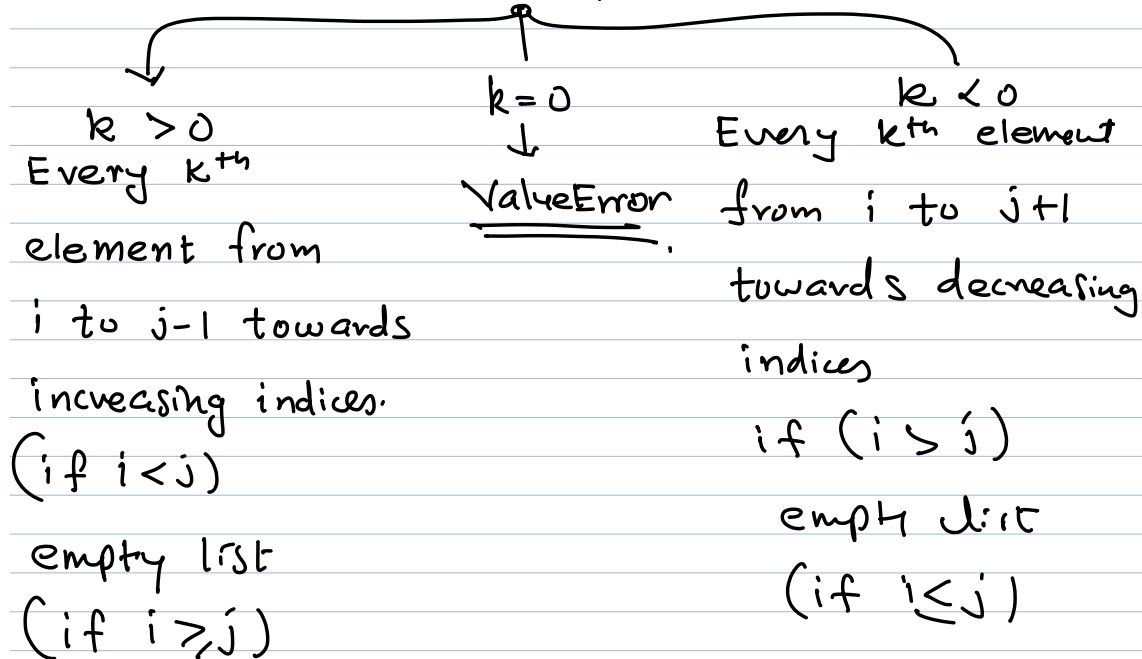 k > 0
Every kth
element from
i to j-1 towards
increasing indices.
(if i < j)
empty list
(if i ≥ j)
k = 0
ValueError
k < 0
Every kth element
from i to j+1
towards decreasing
indices
if (i > j)
empty list
(if i ≤ j)